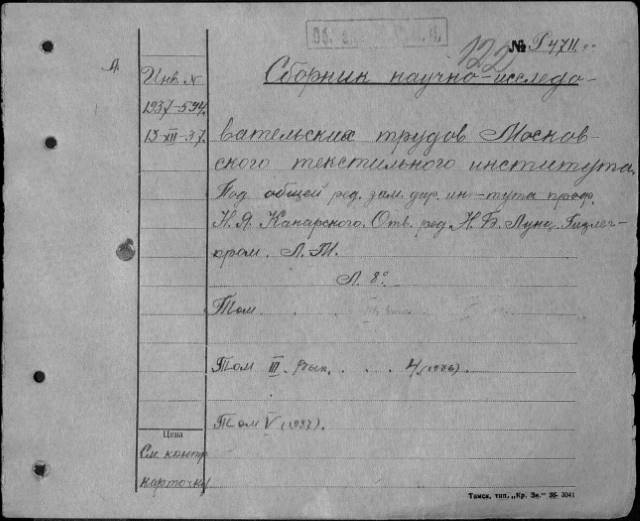 № I 4711
122
Инв. N
1937-594.
13-XII-37.
Сборник научно-исследо-
вательских трудов Москов-
ского текстильного института.
Под общей ред. зам. дир. ин-тута проф.
Н. Я. Канарского. Отв. ред. Н. Б. Лунц. Гизлег-
пром. Л. М.
Л. 8°
Том
Том III. Вып. . . . 4 (1936).
Том V (1937).
Цена
См. контр.
карточку
Томск. тип. „Кр. Зн.“ 35- 3041